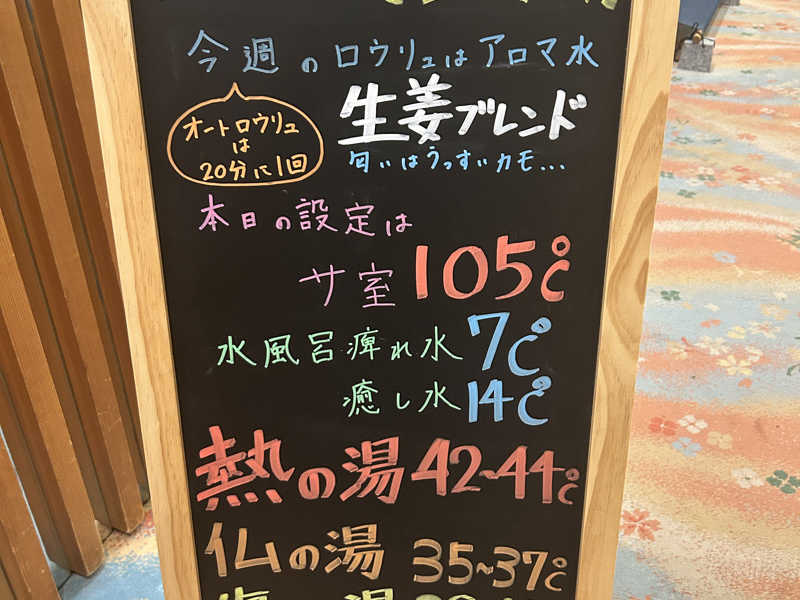 今週のロウリュはアロマ水
オートロウリュ
は
20分に1回
生姜ブレンド
匂いはうっすぃカモ...
本日の設定は
サ室 105℃
水風呂痺れ水 7℃
癒し水 14℃
熱の湯 42~44℃
仏の湯 35~37℃